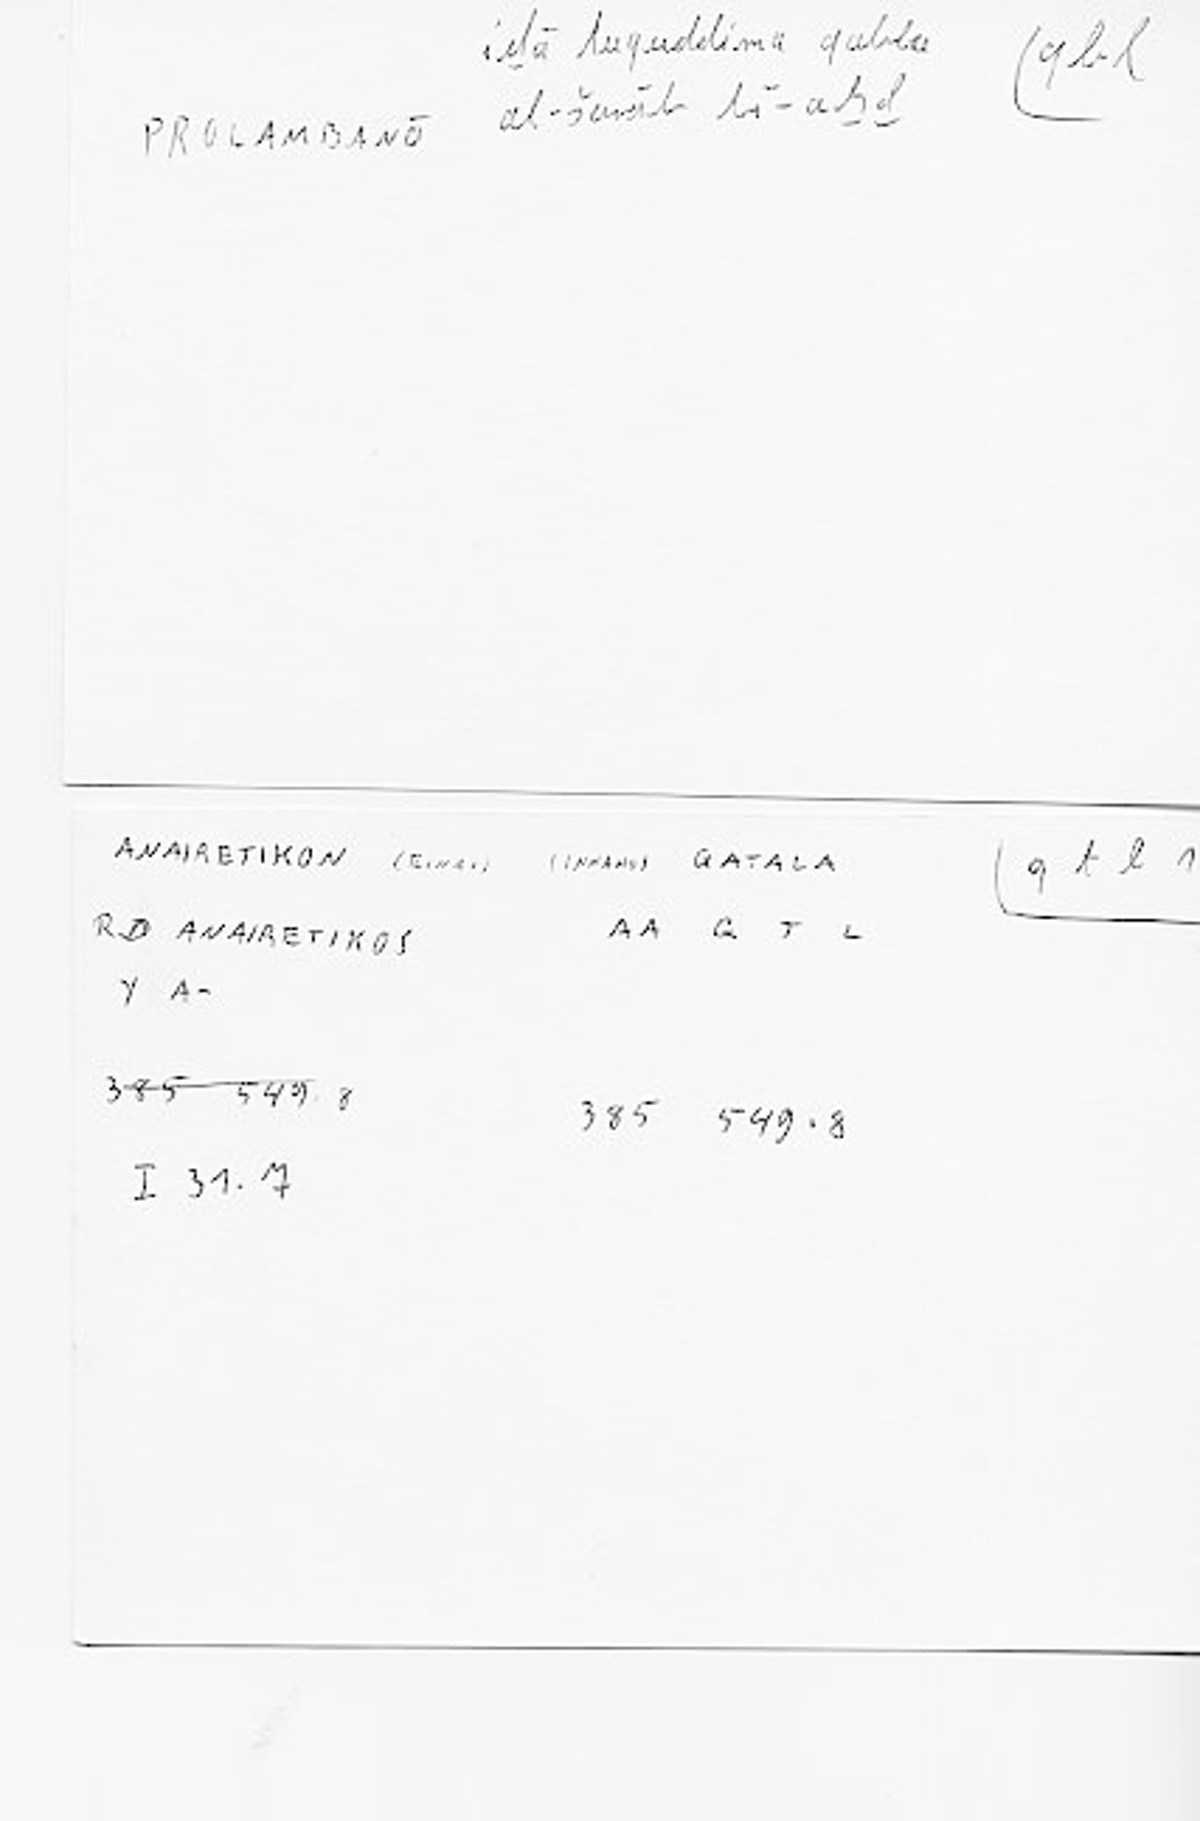 iḏā tuquddima qabla (qbl
al-šarāb bi-aḫḏ
PROLAMBANŌ
ANAIRETIKON (EINAI) (INNAHU) QATALA (qtl 1
RD ANAIRETIKOS AA Q T L
Y A-
385 549.8
385 549.8
I 31.7